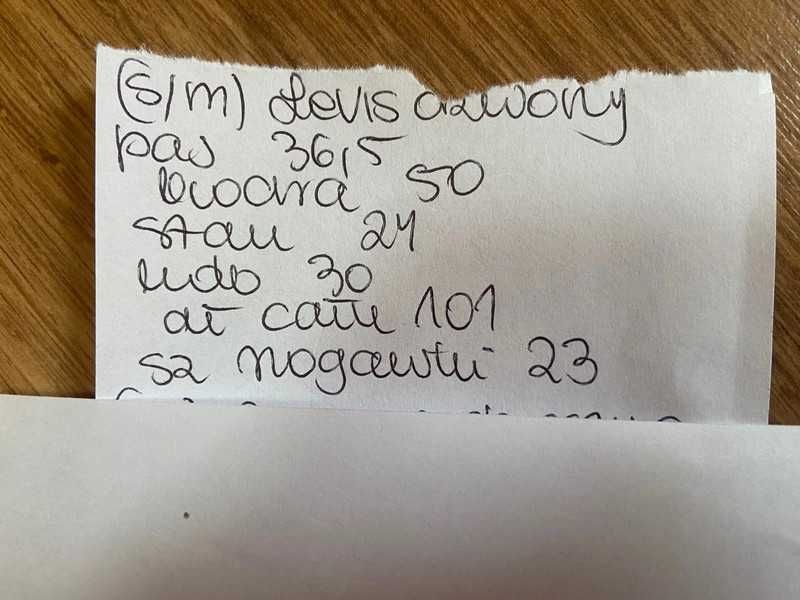 (S/M) Levis czerwony
pas 36,5
biodra 50
stan 24
udo 30
dł całk 101
sz nogawki 23